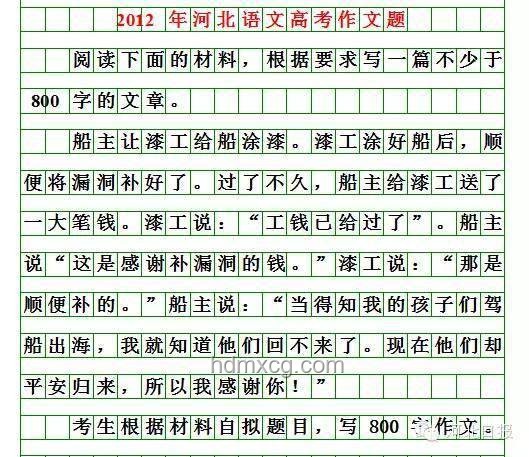 2012 年河北语文高考作文题
阅读下面的材料，根据要求写一篇不少于
800 字的文章。
船主让漆工给船涂漆。漆工涂好船后，顺
便将漏洞补好了。过了不久，船主给漆工送了
一大笔钱。漆工说：“工钱已给过了”。船主
说“这是感谢补漏洞的钱。”漆工说：“那是
顺便补的。”船主说：“当得知我的孩子们驾
船出海，我就知道他们回不来了。现在他们却
平安归来，所以我感谢你！”
hdmxcg.com
考生根据材料自拟题目，写 800 字作文。
河北日报